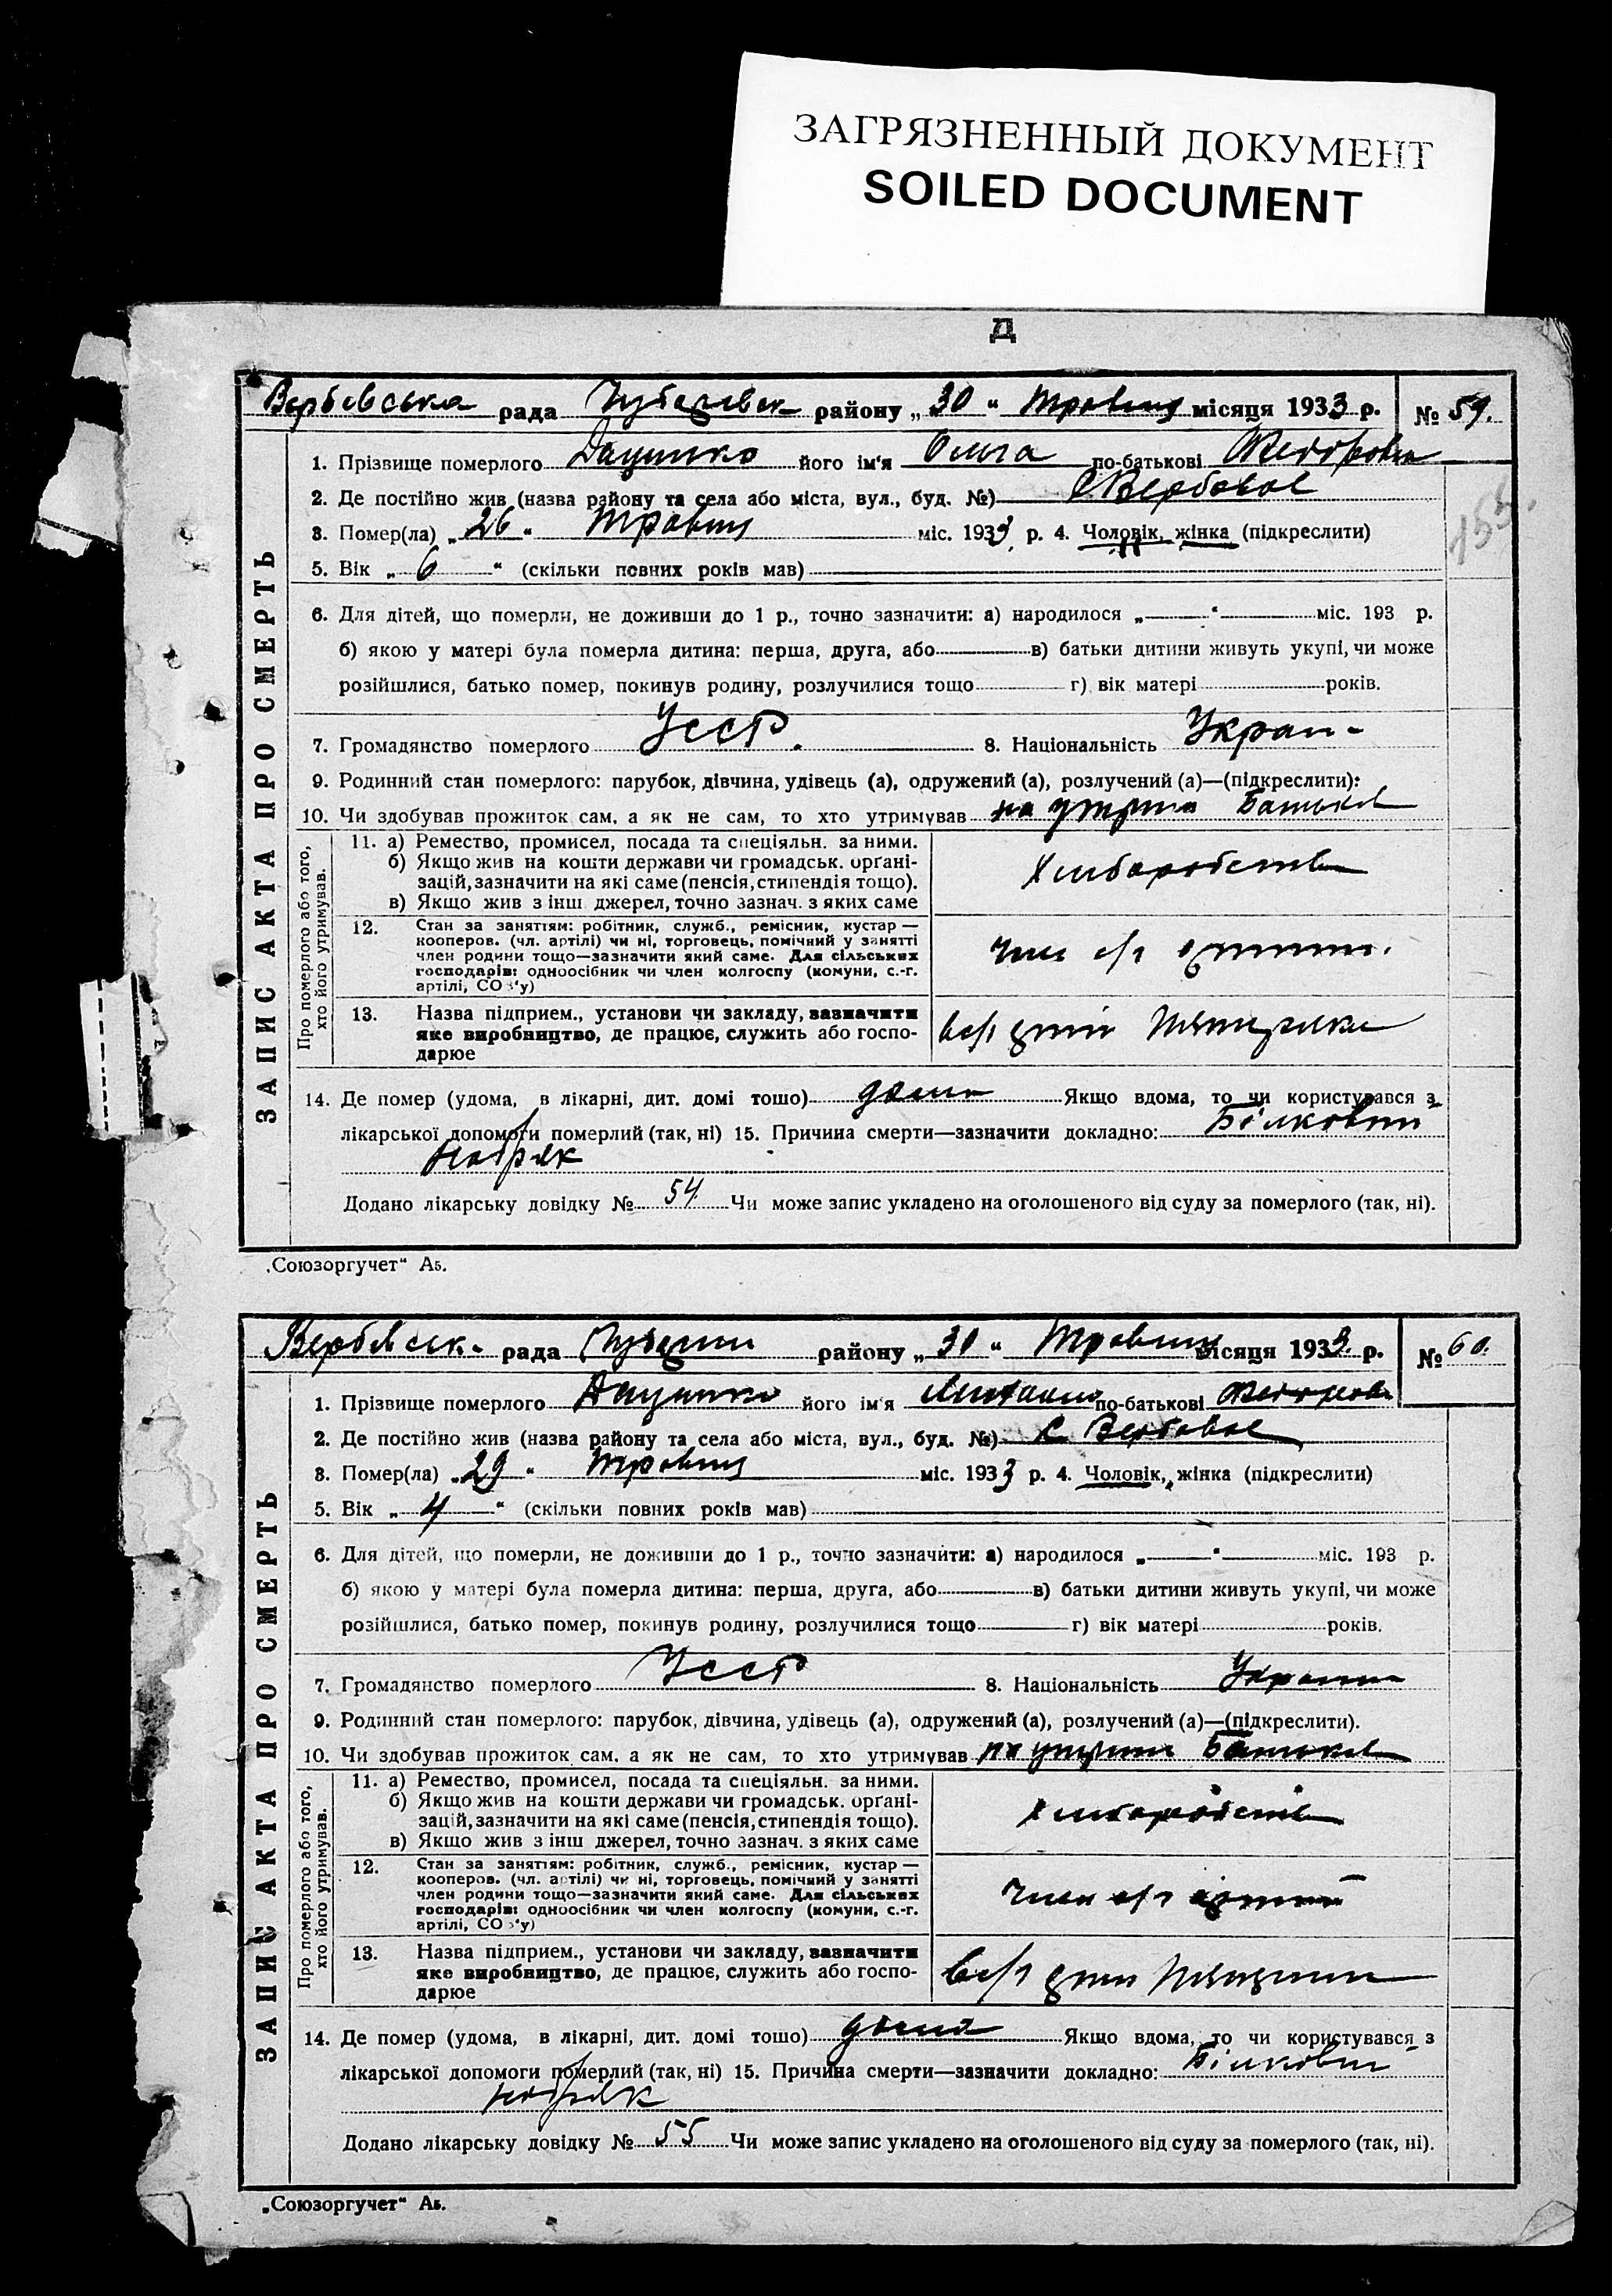 ЗАГРЯЗНЕННЫЙ ДОКУМЕНТ
SOILED DOCUMENT
Д
ЗАПИС АКТА ПРО СМЕРТЬ
Вербовська рада району „30“ місяця 1933 р. № 59.
1. Прізвище померлого його ім'я Ольга по-батькові
2. Де постійно жив (назва району та села або міста, вул., буд. №) с. Вербовое
3. Помер(ла) „26“ Травня міс. 1933 р. 4. Чоловік, жінка (підкреслити)
5. Вік „6“ (скільки повних років мав)
6. Для дітей, що померли, не доживши до 1 р., точно зазначити: а) народилося „ “ міс. 193 р.
б) якою у матері була померла дитина: перша, друга, або в) батьки дитини живуть укупі, чи може
розійшлися, батько помер, покинув родину, розлучилися тощо г) вік матері років.
7. Громадянство померлого УССР. 8. Національність
9. Родинний стан померлого: парубок, дівчина, удівець (а), одружений (а), розлучений (а)—(підкреслити):
10. Чи здобував прожиток сам, а як не сам, то хто утримував на
Про померлого або того, хто його утримував.
11. а) Ремество, промисел, посада та спеціяльн. за ними.
б) Якщо жив на кошти держави чи громадськ. орґані-
зацій, зазначити на які саме (пенсія, стипендія тощо).
в) Якщо жив з інш джерел, точно зазнач. з яких саме
12. Стан за заняттям: робітник, служб., ремісник, кустар —
кооперов. (чл. артілі) чи ні, торговець, помічний у занятті
член родини тощо—зазначити який саме. Для сільських
господарів: одноосібник чи член колгоспу (комуни, с.-г.
артілі, СОЗ'у)
13. Назва підприєм., установи чи закладу, зазначити
яке виробництво, де працює, служить або госпо-
дарює
14. Де помер (удома, в лікарні, дит. домі тощо) дома Якщо вдома, то чи користувався з
лікарської допомоги померлий (так, ні) 15. Причина смерти—зазначити докладно: Білковий
набряк
Додано лікарську довідку № 54 Чи може запис укладено на оголошеного від суду за померлого (так, ні).
„Союзоргучет“ А5.
ЗАПИС АКТА ПРО СМЕРТЬ
рада району „30“ місяця 1933 р. № 60.
1. Прізвище померлого його ім'я по-батькові
2. Де постійно жив (назва району та села або міста, вул., буд. №) с. Вербовое
3. Помер(ла) „29“ Травня міс. 1933 р. 4. Чоловік, жінка (підкреслити)
5. Вік „4“ (скільки повних років мав)
6. Для дітей, що померли, не доживши до 1 р., точно зазначити: а) народилося „ “ міс. 193 р.
б) якою у матері була померла дитина: перша, друга, або в) батьки дитини живуть укупі, чи може
розійшлися, батько помер, покинув родину, розлучилися тощо г) вік матері років.
7. Громадянство померлого УССР 8. Національність
9. Родинний стан померлого: парубок, дівчина, удівець (а), одружений (а), розлучений (а)—(підкреслити).
10. Чи здобував прожиток сам, а як не сам, то хто утримував на
Про померлого або того, хто його утримував.
11. а) Ремество, промисел, посада та спеціяльн. за ними.
б) Якщо жив на кошти держави чи громадськ. орґані-
зацій, зазначити на які саме (пенсія, стипендія тощо).
в) Якщо жив з інш джерел, точно зазнач. з яких саме
12. Стан за заняттям: робітник, служб., ремісник, кустар —
кооперов. (чл. артілі) чи ні, торговець, помічний у занятті
член родини тощо—зазначити який саме. Для сільських
господарів: одноосібник чи член колгоспу (комуни, с.-г.
артілі, СОЗ'у)
13. Назва підприєм., установи чи закладу, зазначити
яке виробництво, де працює, служить або госпо-
дарює
14. Де помер (удома, в лікарні, дит. домі тощо) дома Якщо вдома, то чи користувався з
лікарської допомоги померлий (так, ні) 15. Причина смерти—зазначити докладно: Білковий
набряк
Додано лікарську довідку № 55 Чи може запис укладено на оголошеного від суду за померлого (так, ні).
„Союзоргучет“ А5.